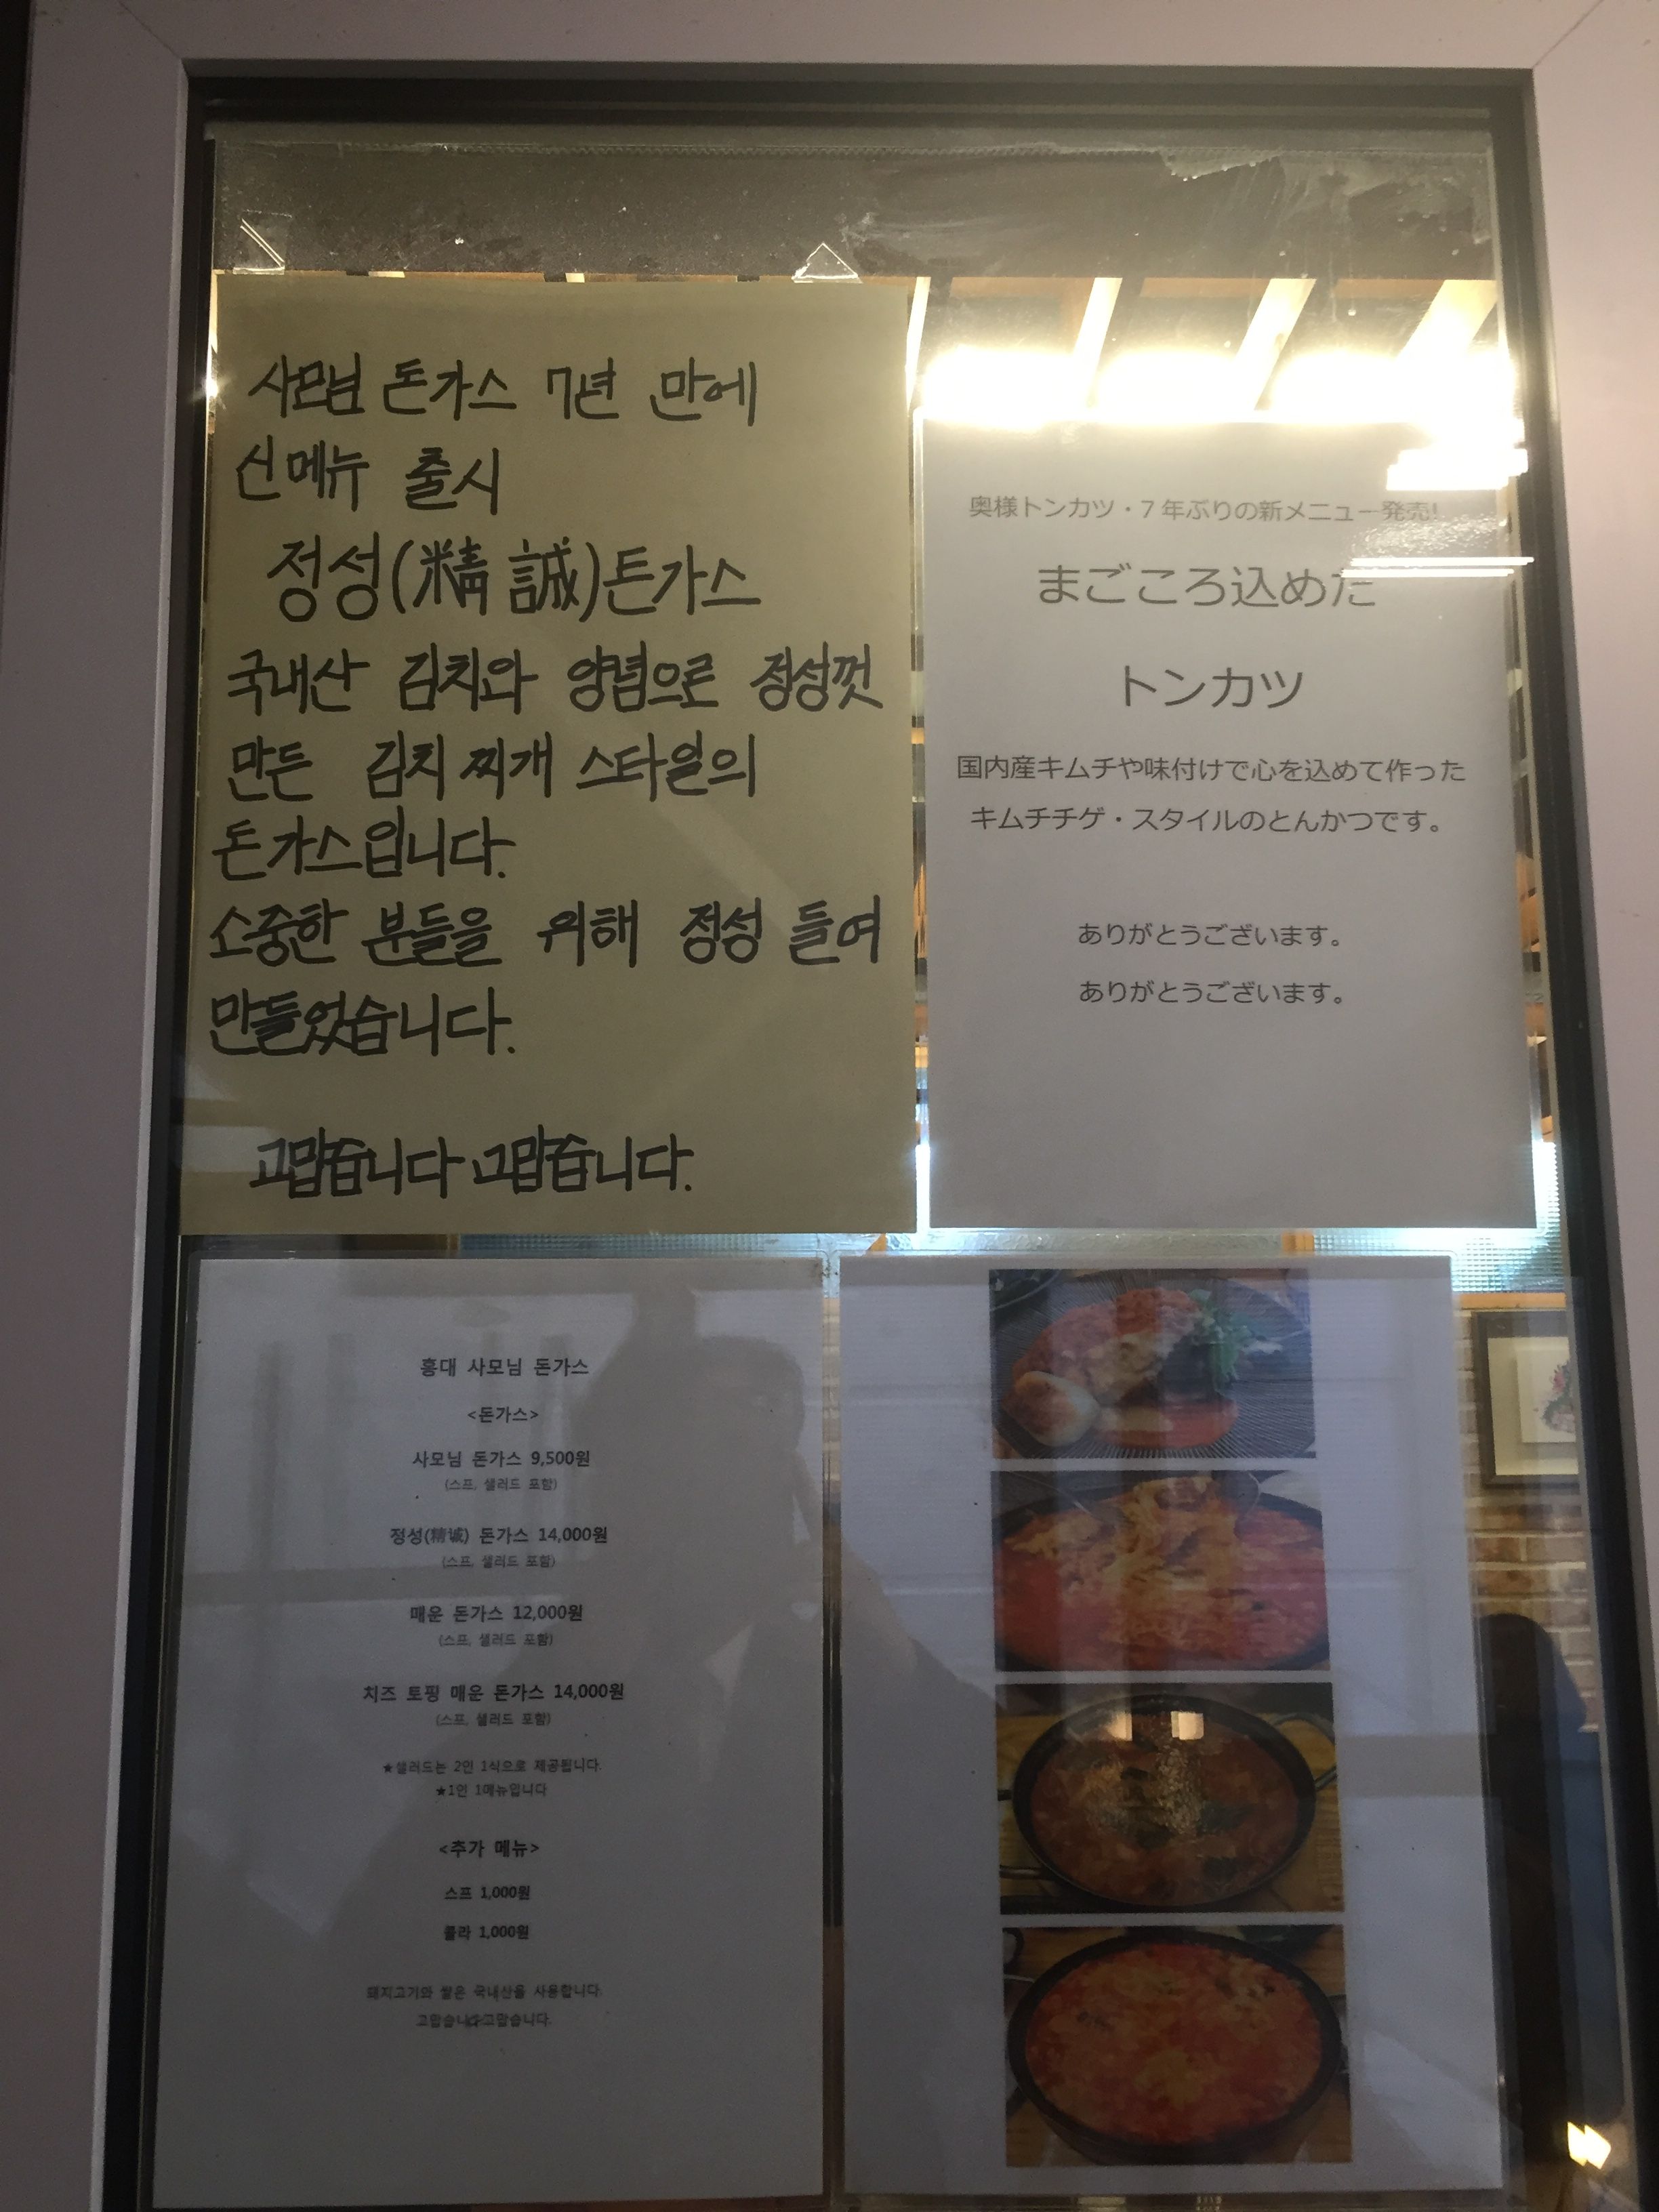 사모님 돈가스 7년 만에
신메뉴 출시
정성(精誠)돈가스
국내산 김치와 양념으로 정성껏
만든 김치찌개 스타일의
돈가스입니다.
소중한 분들을 위해 정성 들여
만들었습니다.
고맙습니다 고맙습니다.
奥様トンカツ・7年ぶりの新メニュー発売!
まごころ込めた
トンカツ
国内産キムチや味付けで心を込めて作った
キムチチゲ・スタイルのとんかつです。
ありがとうございます。
ありがとうございます。
홍대 사모님 돈가스
<돈가스>
사모님 돈가스 9,500원
(스프, 샐러드 포함)
정성(精诚) 돈가스 14,000원
(스프, 샐러드 포함)
매운 돈가스 12,000원
(스프, 샐러드 포함)
치즈 토핑 매운 돈가스 14,000원
(스프, 샐러드 포함)
★샐러드는 2인 1식으로 제공됩니다.
★1인 1메뉴입니다
<추가 메뉴>
스프 1,000원
콜라 1,000원
돼지고기와 쌀은 국내산을 사용합니다.
고맙습니다 고맙습니다.